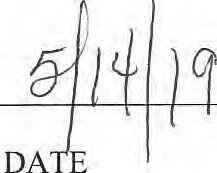 5/14/19
DATE